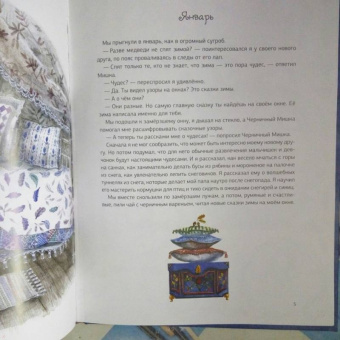 Январь
Мы прыгнули в январь, как в огромный сугроб.
— Разве медведи не спят зимой? — поинтересовался я у своего нового
друга, не пояс проваливаясь в следы от его лап.
— Спят только те, кто не знает, что зима — это пора чудес, — ответил
Мишка.
— Чудес? — переспросил я удивлённо.
— Да. Ты видел узоры на окнах? Это сказки зимы.
— А о чём они?
— Они разные. Но самую главную сказку ты найдёшь на своём окне. Её
зима написала именно для тебя.
Мы подошли к замёрзшему окну, я дышал на стекло, а Черничный Мишка
помогал мне расшифровывать сказочные узоры.
— А теперь ты расскажи мне о чудесах! — попросил Черничный Мишка.
Сначала я не мог сообразить, что может быть интересно моему новому дру-
гу. Но потом подумал, что для него обычные развлечения мальчишек и дев-
чонок будут настоящими чудесами. И я рассказал, как весело мчаться с горы
на санках, как занимательно делать бусы из рябины и мороженое на палочке
из снега, как увлекательно лепить снеговика. Я рассказал ему о волшебных
туннелях из снега, которые делает мой папа наутро после снегопада. Я научил
его мастерить кормушки для птиц и тихо сидеть в ожидании снегирей и синиц.
Мы вместе скользили по замёрзшим лужам, а потом, румяные и счаст-
ливые, пили чай с черничным вареньем, читая новые сказки зимы на моём окне.